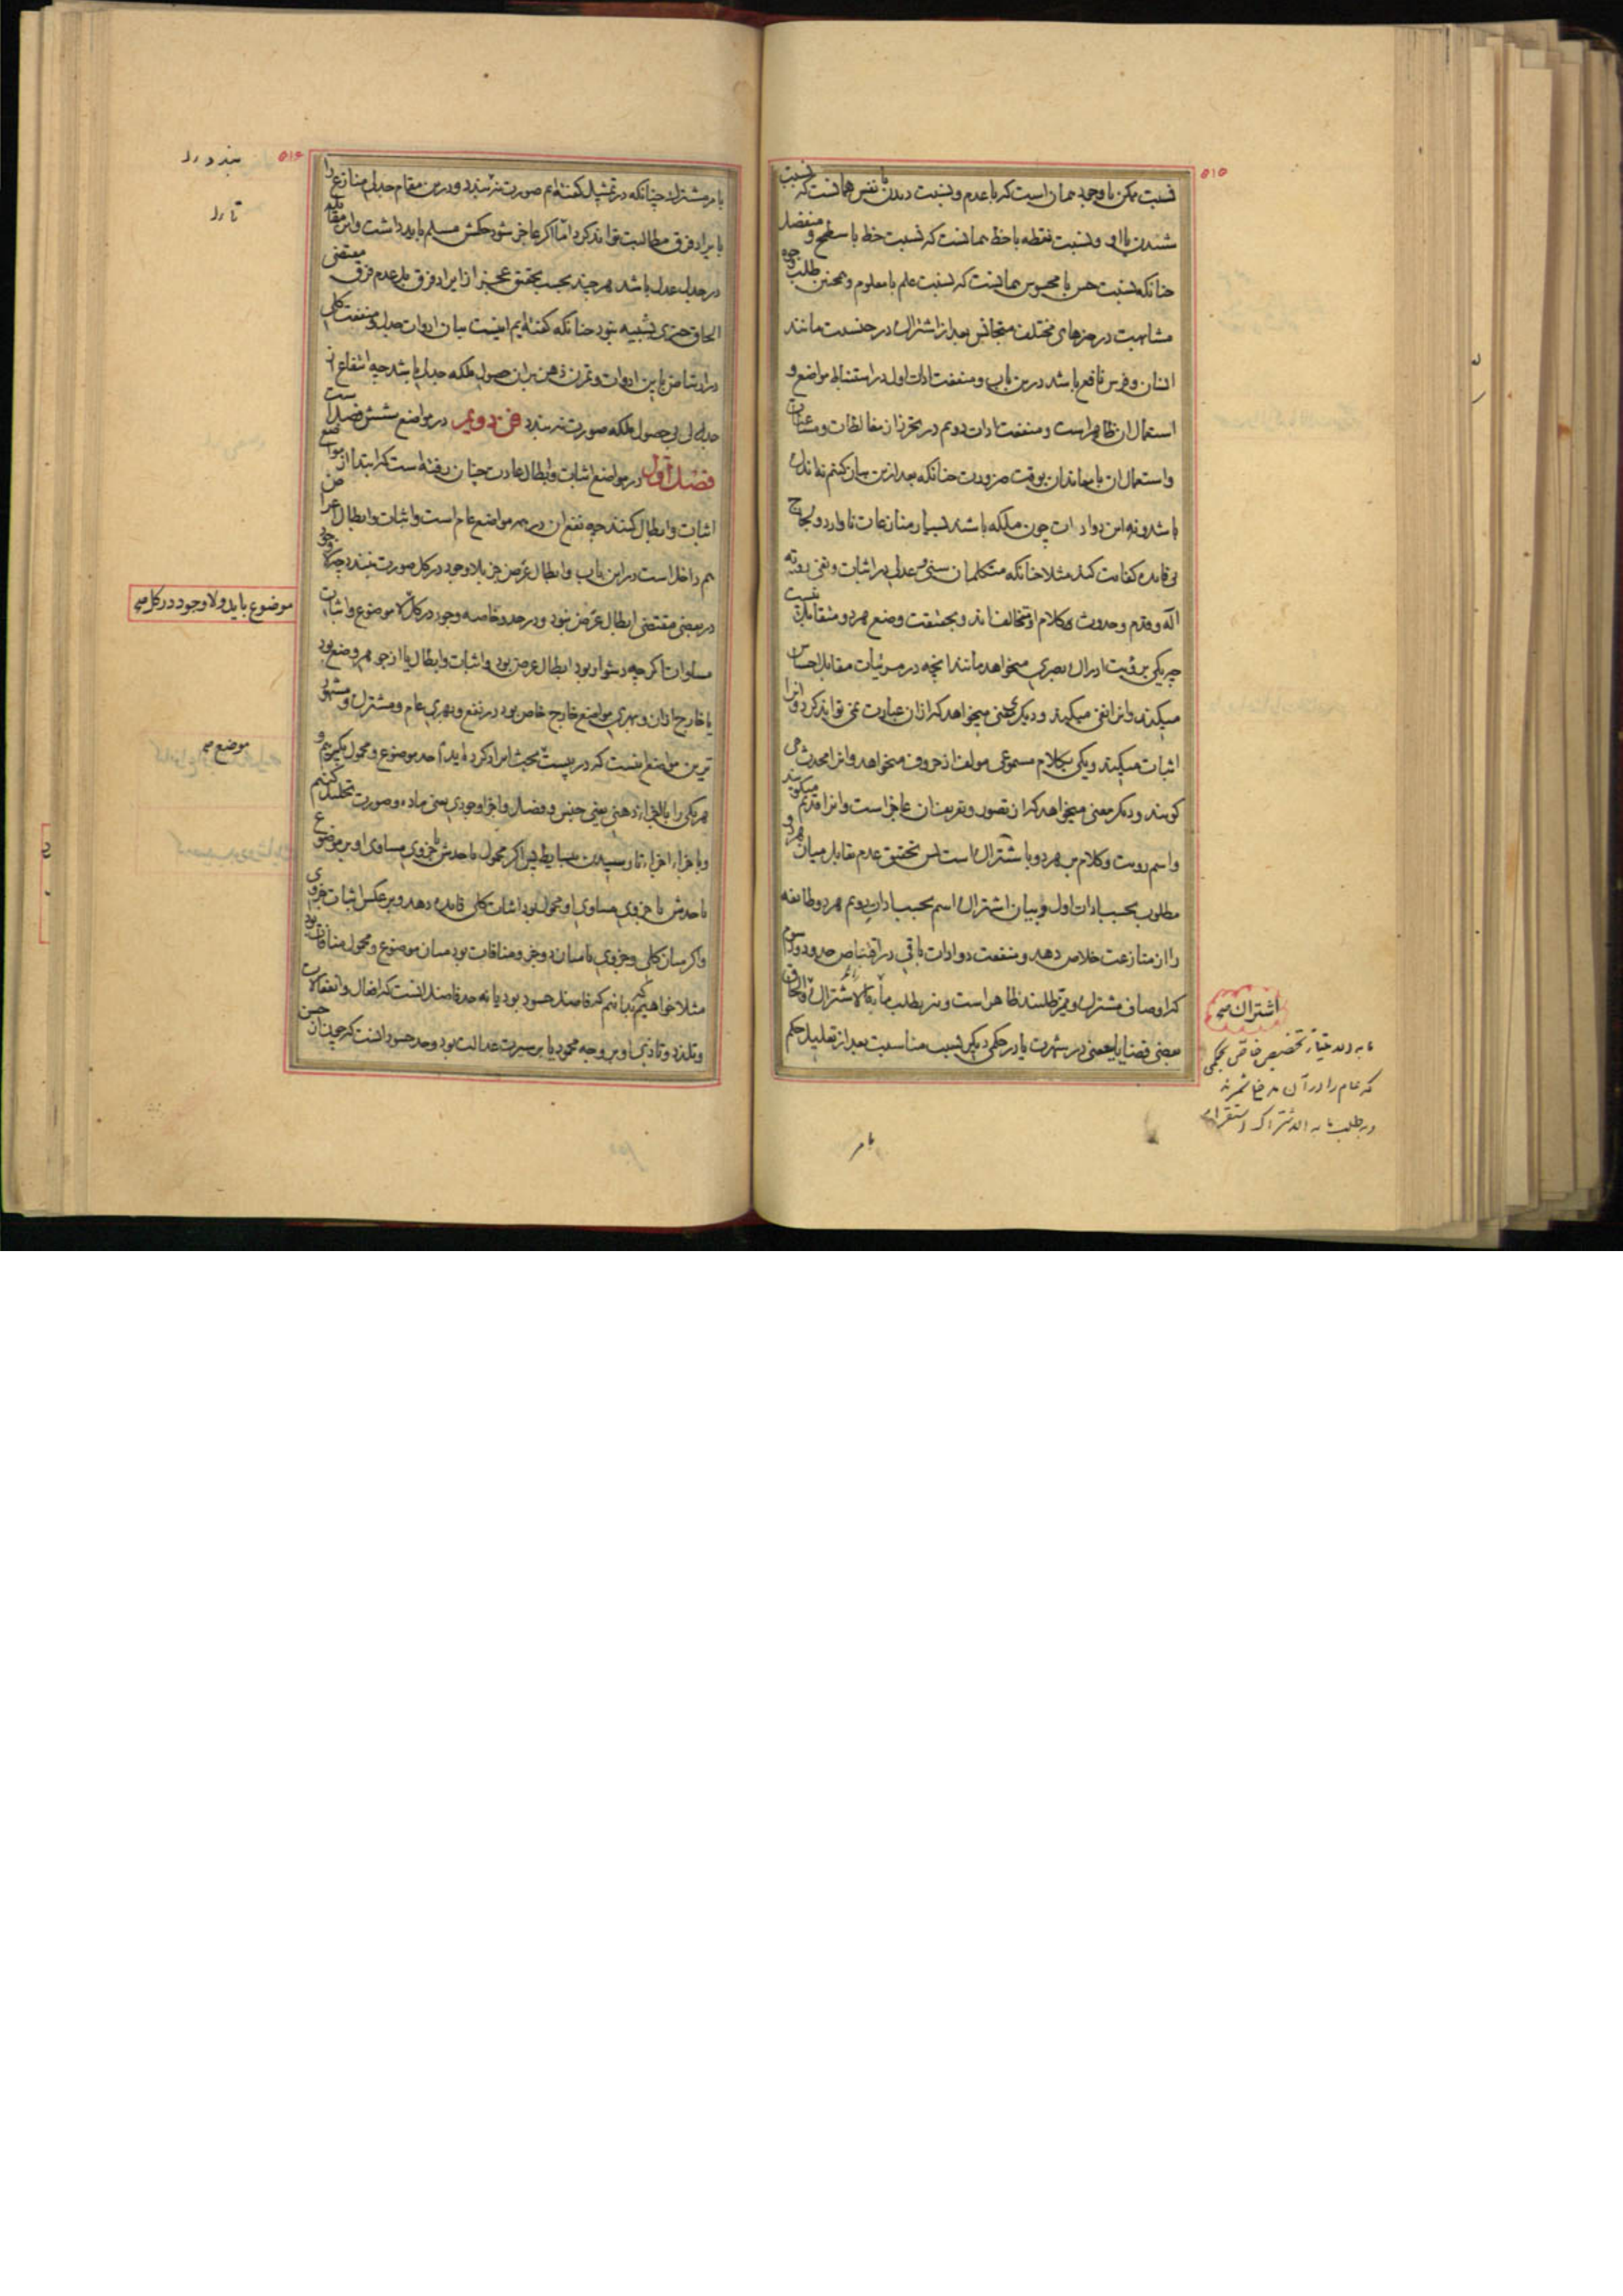 ۵۱۵
نسبت ممکن با وجود همان است که با عدم و نسبت دیدن با نفس همانست که نسبت
شنیدن با او و نسبت نقطه با خط همانست که نسبت خط با سطح و منفصل
چنانکه نسبت حس با محسوس همانست که نسبت علم با معلوم و همچنین طلب وجوه
مشابهت در چیزهای مختلف متجانس بعد از اشتراک در جنسیت مانند
انسان و فرس نافع باشد درین باب و منفعت ادات اول در استنباط مواضع و
استعمال ان ظاهر است و منفعت ادات دویم در تحرز از مغالطات و مشاغبات
واستعمال ان با معاندان بوقت ضرورت چنانکه بعد ازین بیان کنیم نه اندک
باشد و نه این دو ادات چون ملکه باشند بسیار منازعات ناوارد و لجاج
بی فایده کفایت کند مثلا چنانکه متکلمان سنی و عدلی در اثبات و نفی رویة
اله و قدم و حدوث کلام او متخالف اند و بحقیقت وضع هر دو متقابل نیست
چه یکی برؤیت ادراک بصری میخواهد مانند انچه در مرئیات مقابل احساس
میکنند وانرا نفی میکند و دیکر معنی میخواهد که ازان عبارت نمی تواند کرد وانرا
اثبات میکند و یکی بکلام مسموعی مولف از حروف میخواهد وانرا محدث می
کویند و دیکر معنی میخواهد که از تصور و تعریف ان عاجز است وانرا قدیم میکویند
واسم رویت و کلام بر هر دو باشتراک است پس تحقیق عدم تقابل میان هر دو
مطلوب بحسب ادات اول و بیان اشتراک اسم بحسب ادات دویم هر دو طایفه
را از منازعت خلاص دهد و منفعت دو ادات باقی در اقتناص حدود و رسوم
که اوصاف مشترک و ممیز طلبند ظاهر است و نیز بطلب مابه الاشتراک و الحاق
بعضی قضایا ببعضی در شهرت یا در حکمی دیکر بسبب مناسبت بعد از تعلیل حکم
اشتراک صح
که عام را در آن مدخل نمر
بامر
۵۱۶
بامر مشترک چنانکه در تمثیل کفته ایم صورت نبندد و درین مقام جدلی منازع را
بایراد فرق مطالبت تواند کرد اما اکر عاجز شود حکمش مسلم باید داشت واین مقابله
در جدل عدل باشد هر چند بحسب تحقیق عجز از ایراد فرق بل عدم فرق مقتضی
الحاق چیزی بشبیه نبود چنانکه کفته ایم اینست بیان ادوات جدل و منفعت کلی
در ارتیاض باین ادوات و تمرن ذهن بران حصول ملکه جدلی باشد چه انتفاع از
جدل بی حصول ملکه صورت نبندد فن دویم در مواضع شش فصل است
فصل اول در مواضع اثبات و ابطال عادت چنان رفته است که ابتدا از مواضع
اثبات و ابطال کنند چه نفع ان در همه مواضع عام است و اثبات و ابطال اعراض
هم داخل است در این باب وابطال عرض جز بلا وجود در کل صورت نبندد چه لا وجود
در بعضی مقتضی ابطال عرض نبود و در حد و خاصه وجود در کل موضوع و اثبات
مساوات اکر چه دشوار بود ابطال عرض بود و اثبات و ابطال یا از جوهر وضع بود
یا خارج ازان و بهری مواضع خارج خاص بود در نفع و بهری عام و مشترک و مشهور
ترین مواضع انست که در بیست مبحث ایراد کرده اید ا حد موضوع و محمول بکیریم و
هر یکی را بالاجزاء ذهنی یعنی جنس و فصل و اجزاء وجودی یعنی ماده و صورت تحلیل کنیم
و باجزاء اجزاء تا رسیدن ببسایط پس اکر محمول یا حدش یا جزوی مساوی او بر موضوع
یا حدش یا جزوی مساوی او محمول بود اثبات کلی فایده دهد و بر عکس اثبات جزوی
واکر میان کلی و جزوی یا میان دو جزو منافات بود میان موضوع و محمول منافات بود
مثلا خواهیم که بدانیم که فاضل حسود بود یا نه حد فاضل انست که افعال و انفعالات
و تلذذ و تاذی او بر وجه محمود یا بر سیرت عدالت بود و حد حسود انست که خویشان حسن
بندد رد
تارد
موضوع باید و لا وجود در کل صح
موضع صح